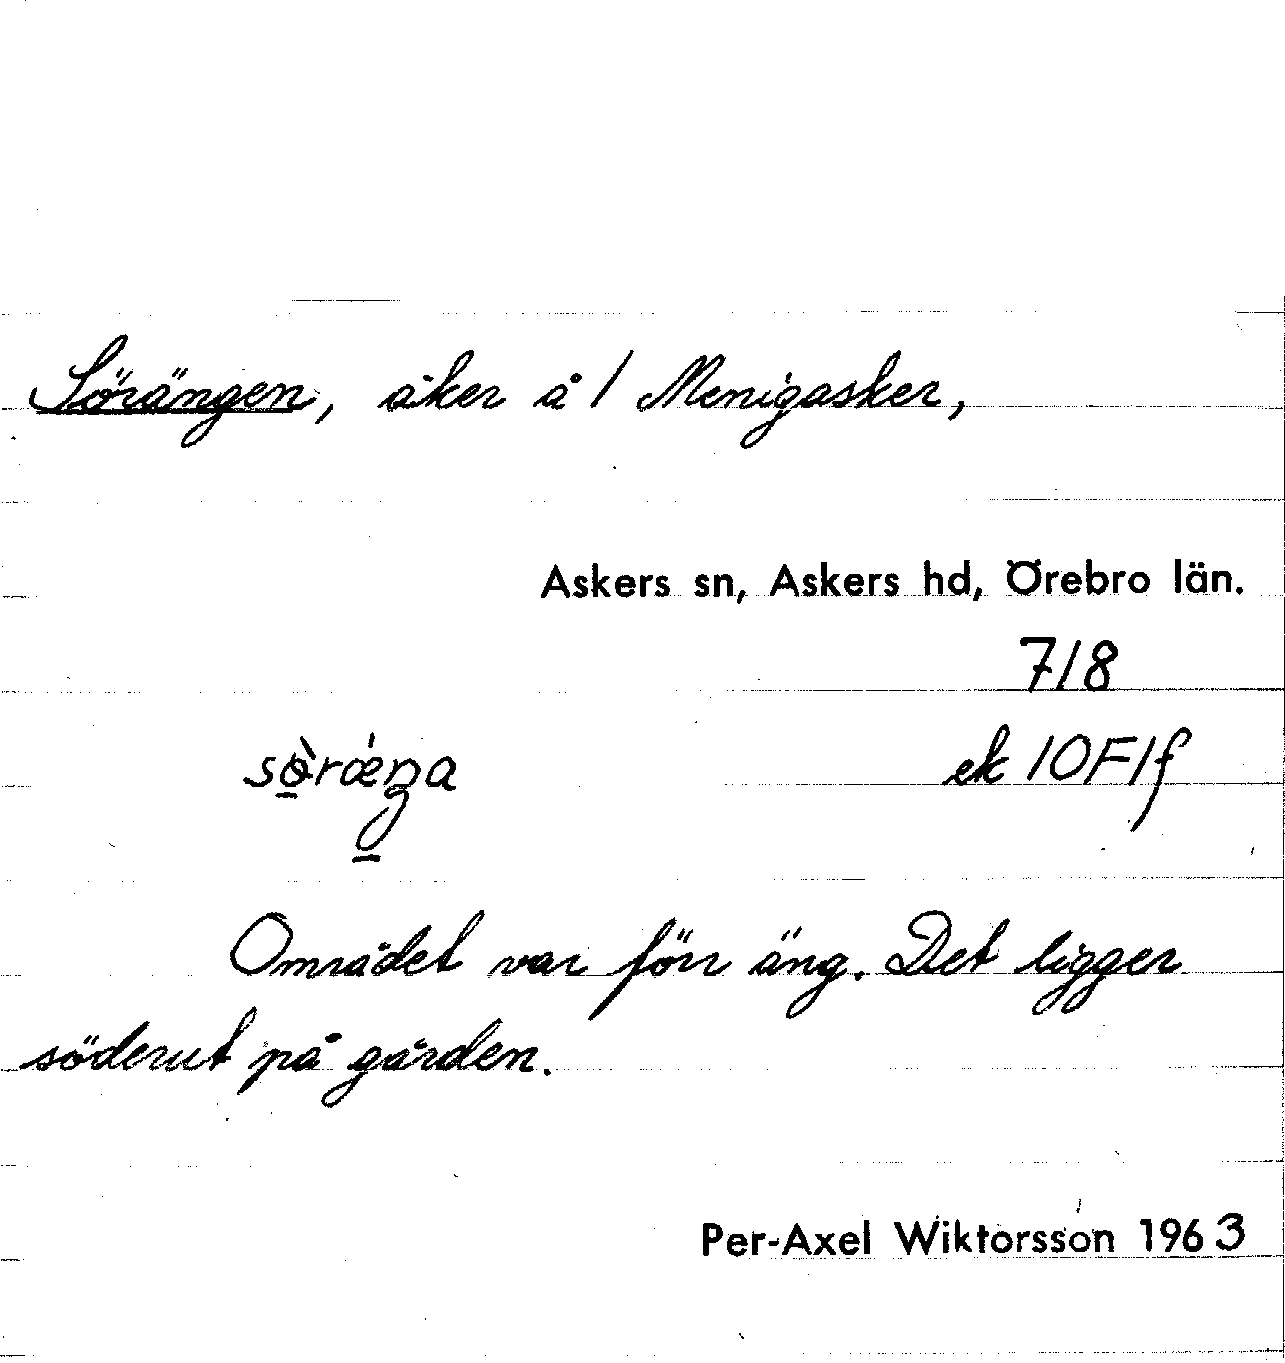 Sörängen, åker å 1 Menigasker,
Askers sn, Askers hd, Örebro län.
718
ek 10F1f
Området var förr äng. Det ligger
söderut på gården.
Per-Axel Wiktorsson 1963